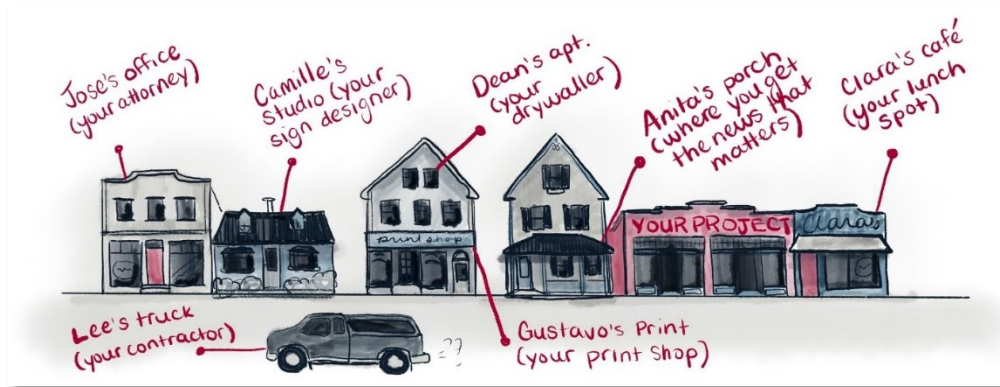 Jose's office
(your attorney)
Camille's
studio (your
sign designer)
Dean's apt.
(your
drywaller)
Anita's porch
(where you get
the news that
matters)
Clara's café
(your lunch
spot)
print shop
YOUR PROJECT
Clara's
Lee's truck
(your contractor)
=??
Gustavo's Print
(your print shop)